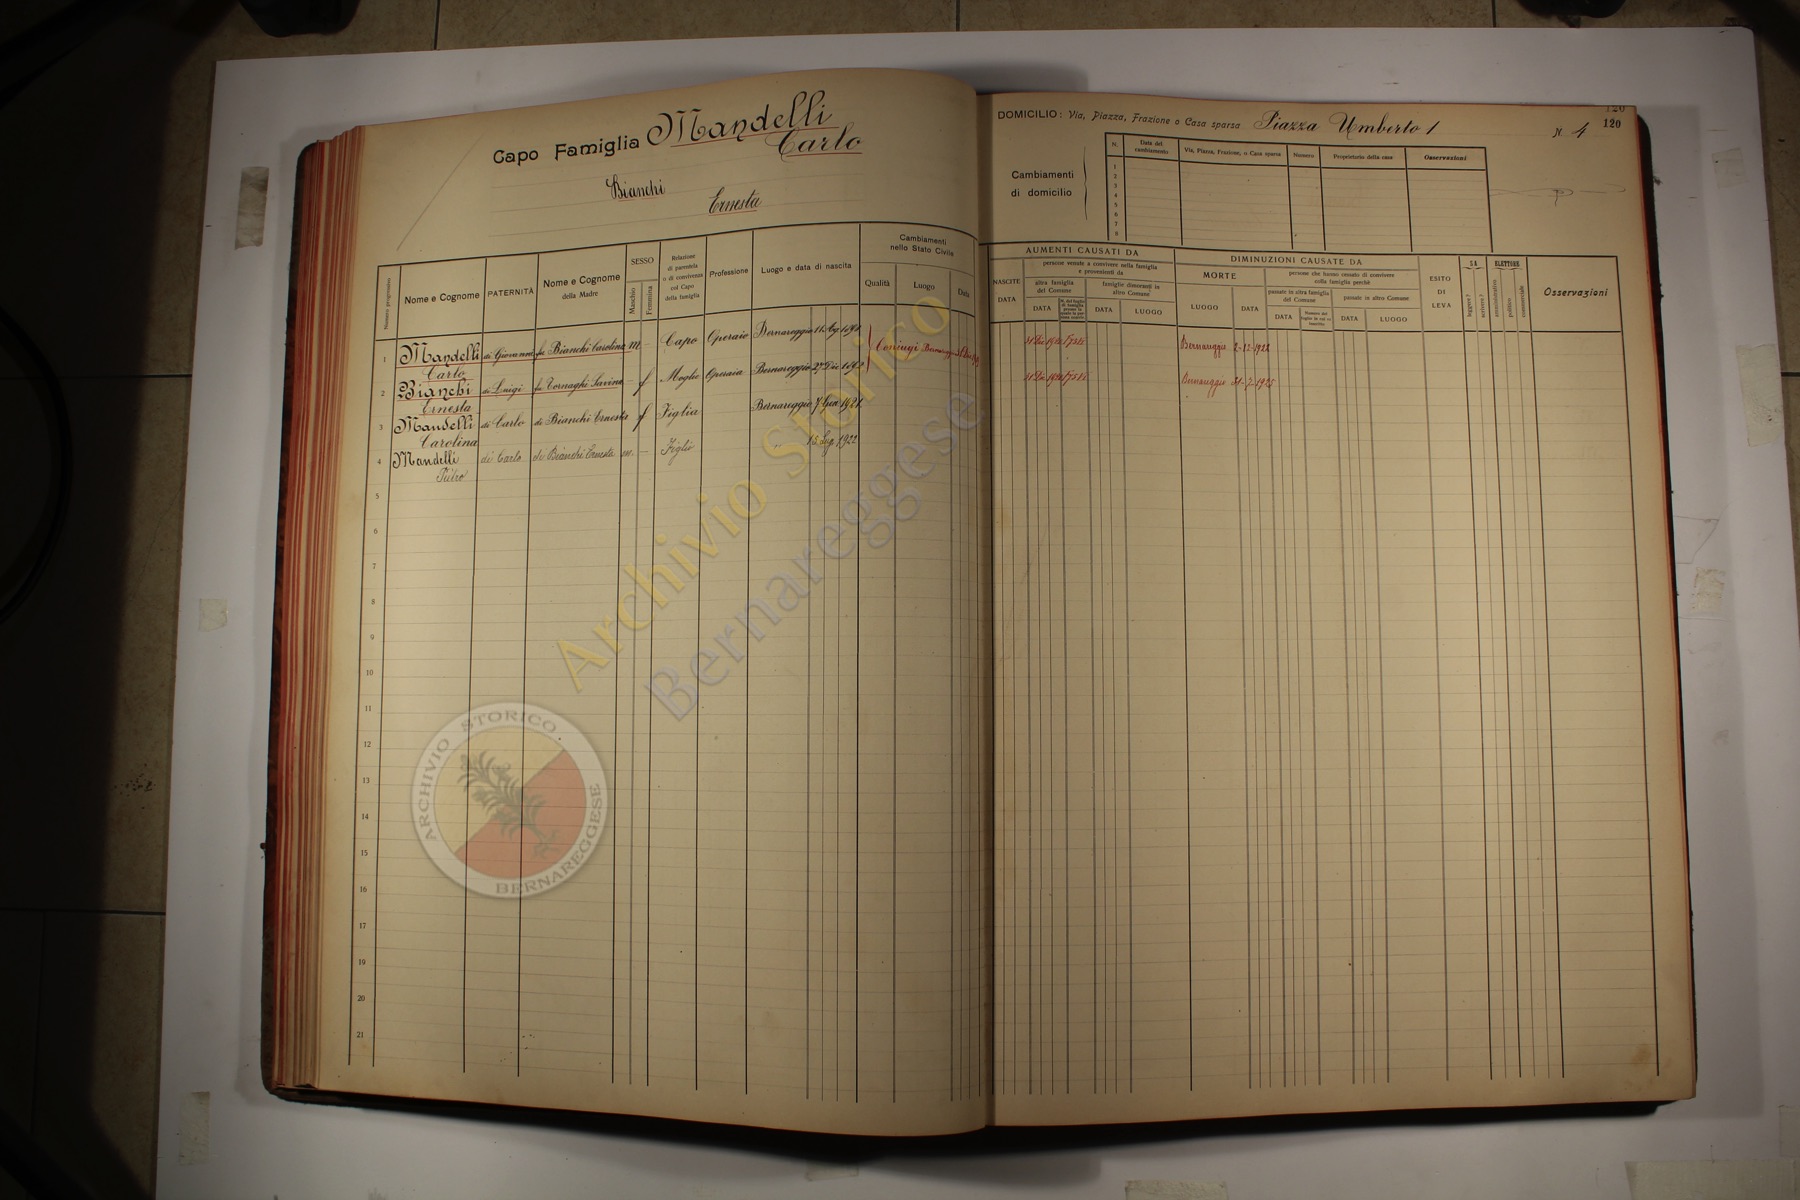 Capo Famiglia Mandelli
Carlo
Bianchi
Ernesta
Numero progressivo
Nome e Cognome
PATERNITÀ
Nome e Cognome
della Madre
SESSO
Maschio
Femmina
Relazione
di parentela
o di convivenza
col Capo
della famiglia
Professione
Luogo e data di nascita
Cambiamenti
nello Stato Civile
Qualità
Luogo
Data
1 Mandelli di Giovanni fu Bianchi Carolina m. — Capo Operaio Bernareggio 11 Coniugi Bernareggio
Carlo
2 Bianchi di Luigi fu Tornaghi Savina — f Moglie Operaia Bernareggio 27 Dic 1892
Ernesta
3 Mandelli di Carlo di Bianchi Ernesta — f Figlia Bernareggio 7 Gen 1921
Carolina
4 Mandelli di Carlo di Bianchi Ernesta m. — Figlio 1922
Pietro
5
6
7
8
9
10
11
12
13
14
15
16
17
18
19
20
21
120
DOMICILIO: Via, Piazza, Frazione o Casa sparsa Piazza Umberto 1 N. 4 120
Cambiamenti
di domicilio
N.
Data del
cambiamento
Via, Piazza, Frazione, o Casa sparsa
Numero
Proprietario della casa
Osservazioni
1
2
3
4
5
6
7
8
AUMENTI CAUSATI DA
NASCITE
DATA
persone venute a convivere nella famiglia
e provenienti da
altra famiglia
del Comune
DATA
famiglie dimoranti in
altro Comune
DATA
LUOGO
DIMINUZIONI CAUSATE DA
MORTE
LUOGO
DATA
persone che hanno cessato di convivere
colla famiglia perchè
passate in altra famiglia
del Comune
DATA
passate in altro Comune
DATA
LUOGO
ESITO
DI
LEVA
SA
leggere?
scrivere?
ELETTORE
amministrativo
politico
commerciale
Osservazioni
Bernareggio 2-12-1922
Bernareggio 31-7-1925
Archivio Storico
Bernareggese
ARCHIVIO STORICO
BERNAREGGESE